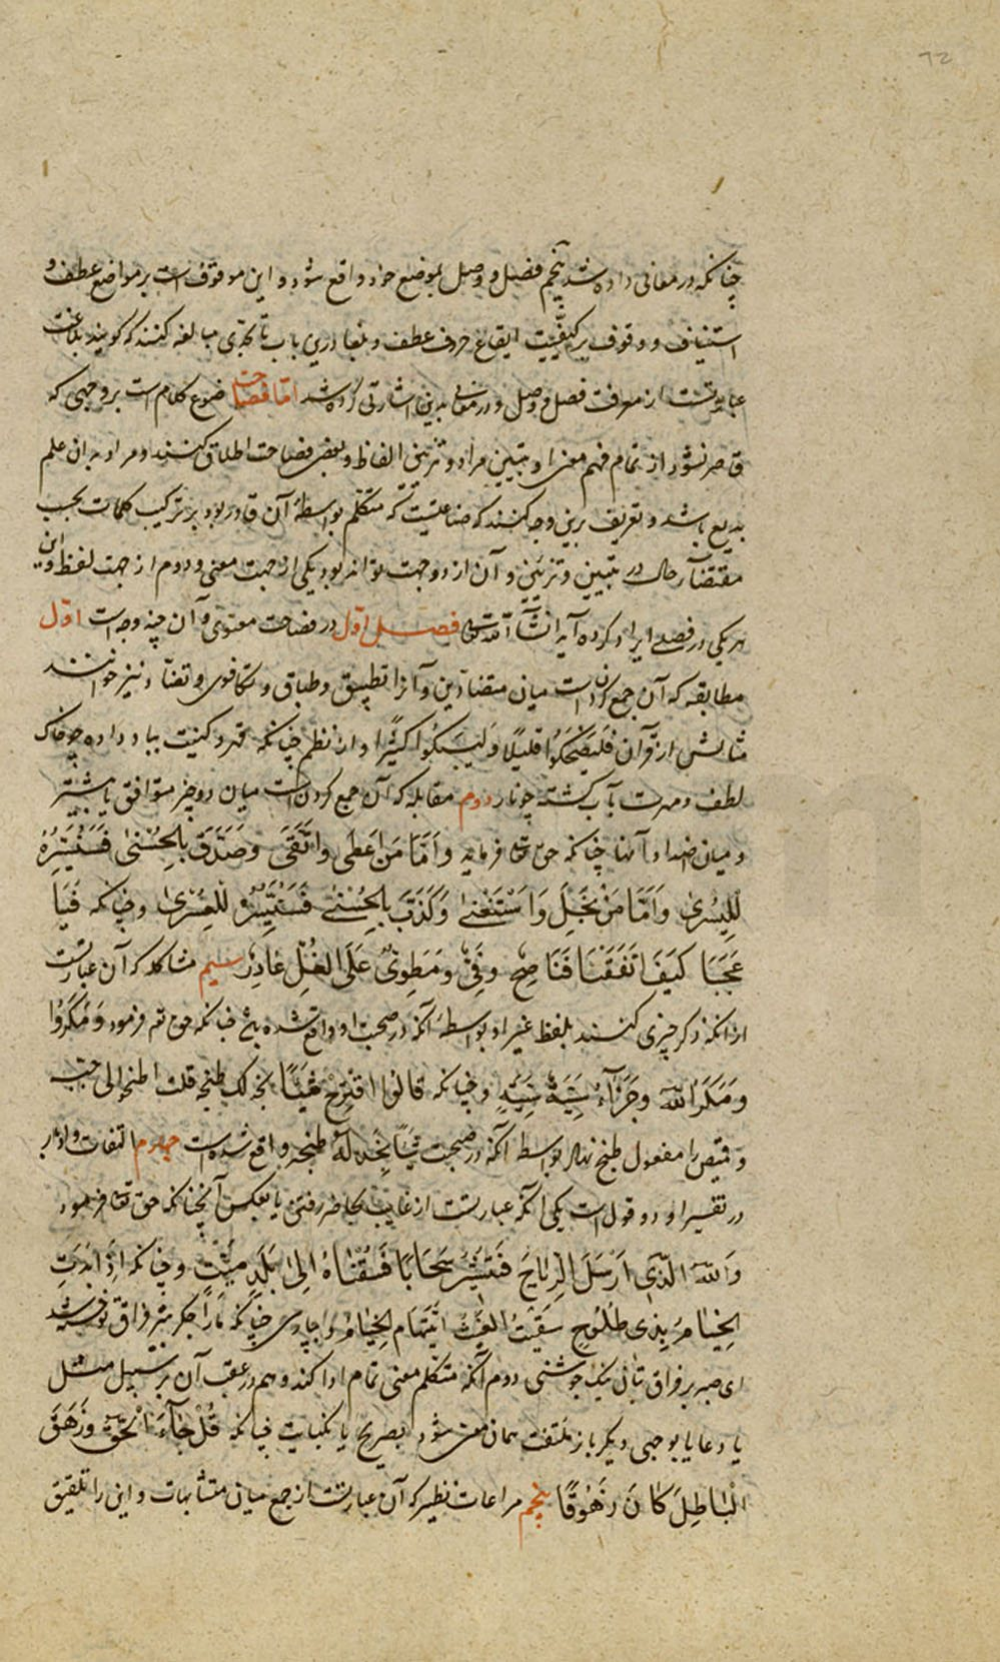 چنانکه در معانی داده شد پنجم فصل و وصل بموضع خود واقع شود و این موقوفست بر مواضع عطف و
استیناف و وقوف بر کیفیت ایقاع حروف عطف و بلغا درین باب تا بحدی مبالغه کنند که گویند بلاغت
عبارتست از معرفت فصل و وصل و در معانی بدین اشارتی کرده شد اما فصاحت کلام است بر وجهی که
قاصر نشود از تمام فهم معنی او و تبیین مراد و تزیین الفاظ و بعضی فصاحت اطلاق کنند و مراد بدان علم
بدیع باشد و تعریف برین وجه کنند که صناعتیست که متکلم بواسطهٔ آن قادر بود بر ترکیب کلمات بحسب
مقتضای حال در تبیین و تزیین و آن از دو جهت تواند بود یکی از جهت معنی و دوم از جهت لفظ و این
هر یکی در فصلی ایراد کرده آید انشاء الله تعالی فصل اول در فصاحت معنوی و آن چند وجه است اول
مطابقه که آن جمع کردنست میان متضادین و آنرا تطبیق و طباق و تکافوی و تضاد نیز خوانند
مثالش از قرآن فَلْیَضْحَکُوا قَلِیلًا وَلْیَبْکُوا کَثِیرًا و از نظم چنانکه قهر و کینت بباد داده چو خاک
لطف و مهرت بآب کشته چو نار دوم مقابله که آن جمع کردنست میان دو چیز متوافق یا بیشتر
و میان اضداد آنها چنانکه حق تعالی فرماید وَاَمَّا مَن اَعطَی واتَّقَی وَصَدَّقَ بِالحُسْنٰی فَسَنُیَسِّرُهُ
لِلیُسرٰی وَاَمَّا مَنْ بَخِلَ وَاسْتَغْنٰی وَکَذَّبَ بِالحُسْنٰی فَسَنُیَسِّرُهُ لِلعُسْرٰی و چنانکه فَیَا
عَجَبَا کَیفَ اتَّفَقْنَا فَنَاصِحٌ وَفِیٌّ وَمَطوِیٌّ عَلَی الغِلِّ غَادِر سیم مشاکله که آن عبارتست
از آنکه ذکر چیزی کنند بلفظ غیر او بواسطهٔ آنکه در صحبت او واقع شده چنانکه حق تعالی فرمود وَمَکَرُوا
وَمَکَرَ اللّٰه وَجَزَآءُ سَیِّئَةٍ سَیِّئَةٌ و چنانکه قالُوا اقتَرِحْ شَیئًا نجد لک طبخه قلت اطبخوا لی جبة
و قمیص را مفعول طبخ نهاد بواسطهٔ آنکه در صحبت شَیئًا نُجِد لَکَ طبخه واقع شده است چهارم التفات و او را
در تفسیر او دو قول است یکی آنکه عبارتست از غایب بحاضر رفتن یا بعکس آن چنانکه حق تعالی فرمود
وَاللّٰه الَّذِی اَرْسَلَ الرِّیَاحَ فَتُثِیرُ سَحَابًا فَسُقْنَاهُ اِلٰی بَلَدٍ مَیِّتٍ و چنانکه
الخِیَامُ بِذِی طُلُوحٍ سُقِیتِ الغَیثَ اَیَّتُهَا الخِیَامُ
ای صبر بر فراق بتان نیک جوشنی دوم آنکه متکلم معنی تمام ادا کند و هم در عقب آن بر سبیل مثل
یا دعا یا بوجهی دیگر باز ملتفت همان معنی شود بصریح یا بکنایت چنانکه قُلْ جَآءَ الحَقُّ وَزَهَقَ
البَاطِلُ اِنَّ البَاطِلَ کَانَ زَهُوقًا پنجم مراعات نظیر که آن عبارتست از جمع میان متشابهات و این را تلفیق